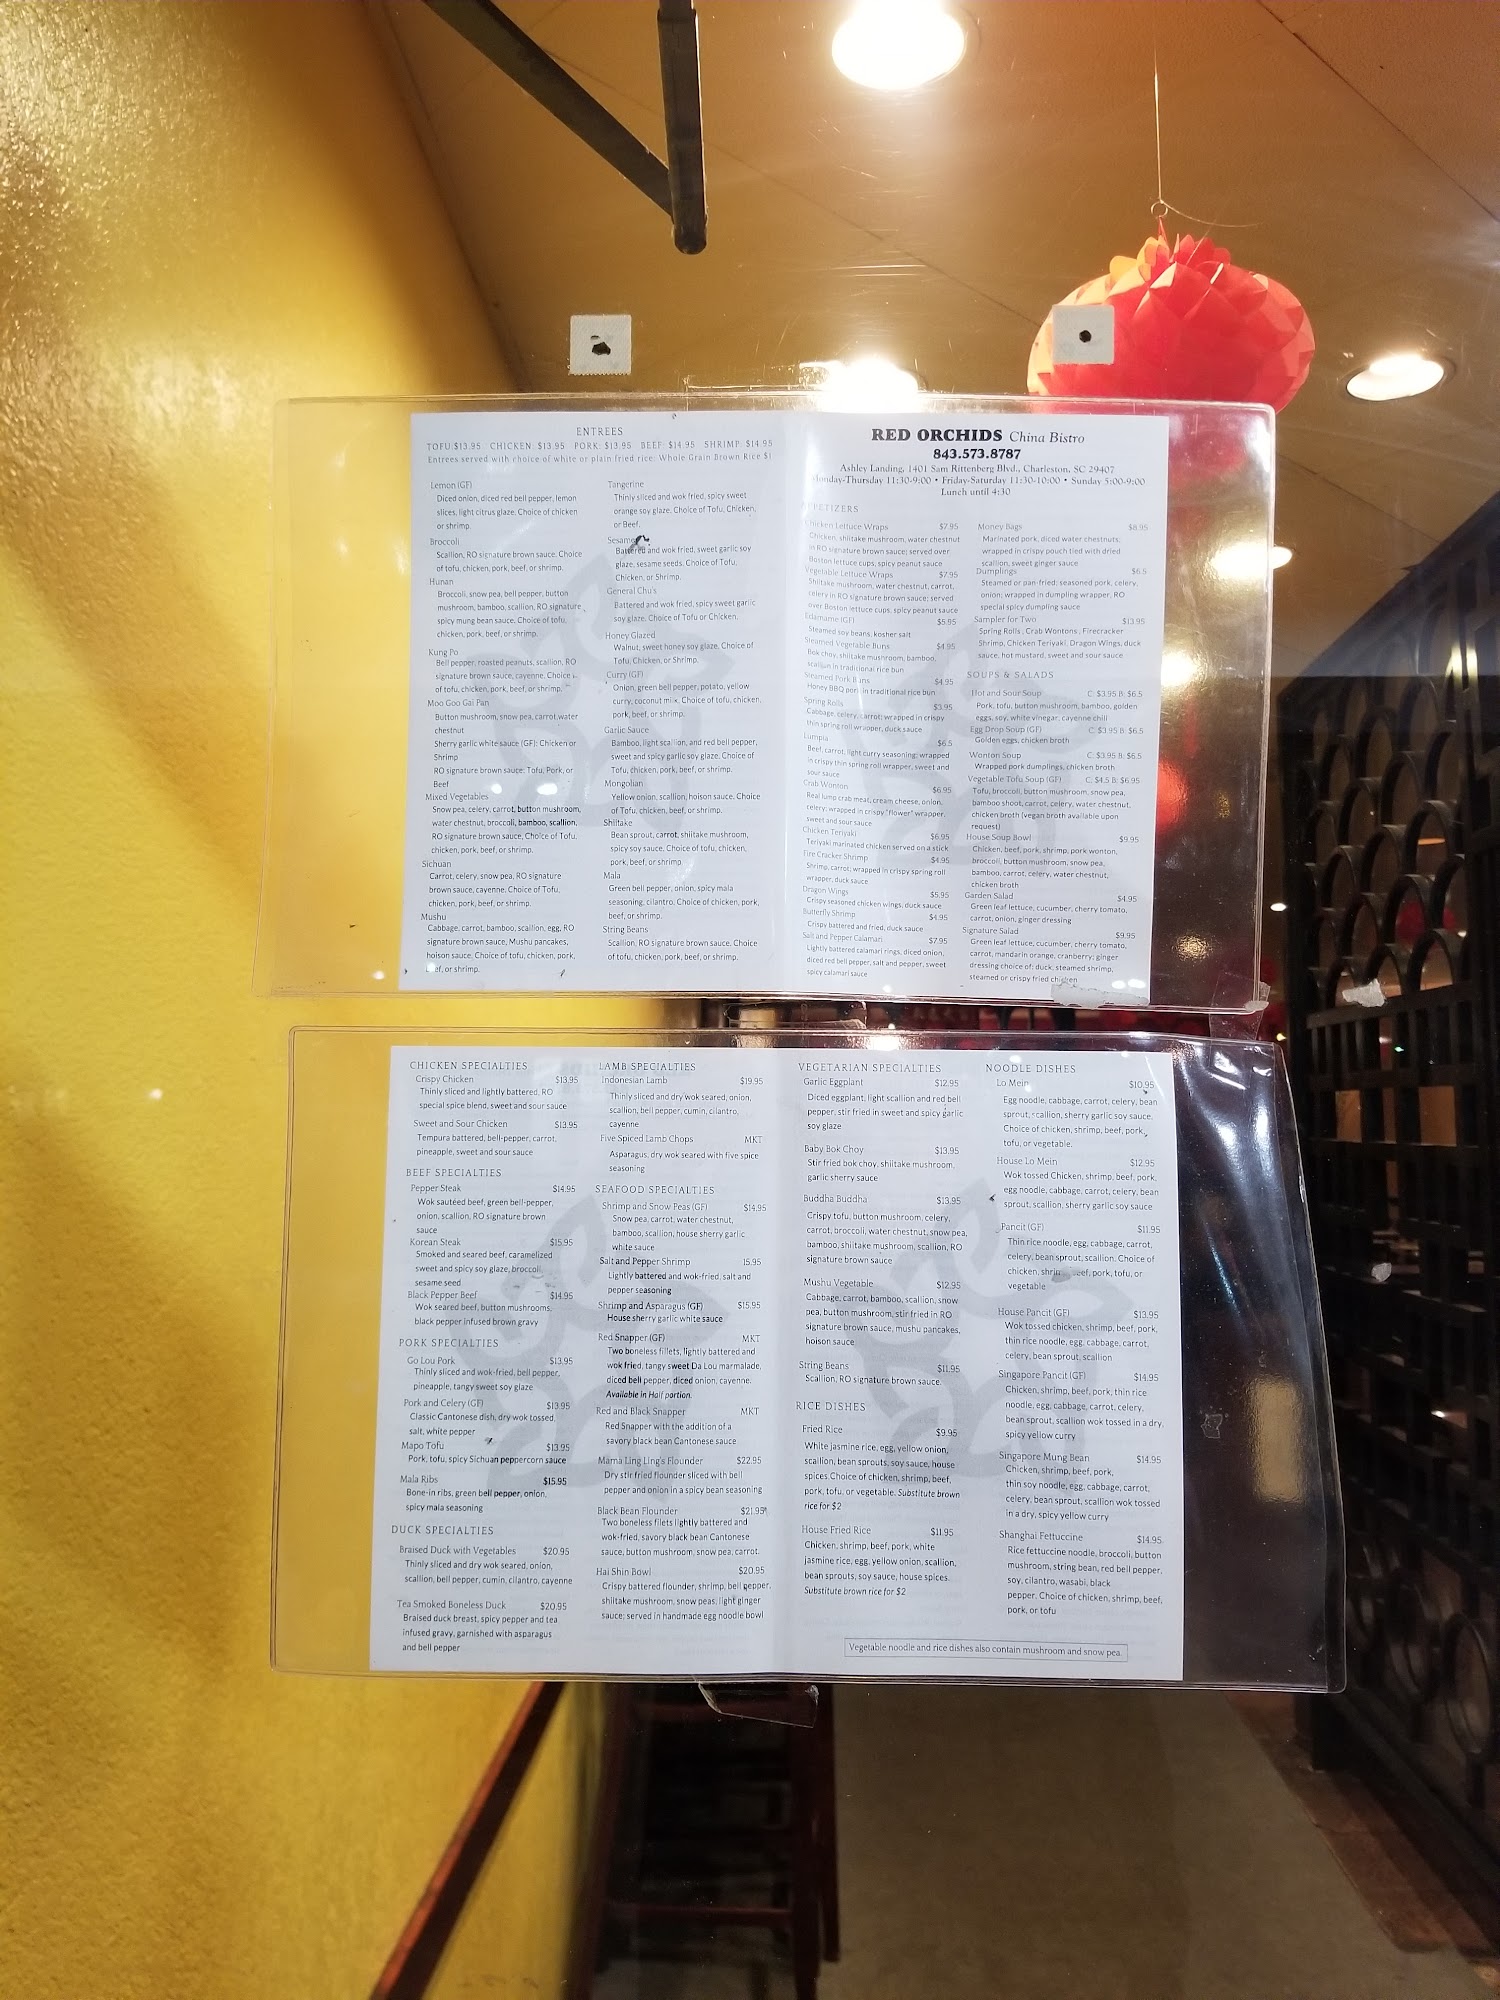 ENTREES
TOFU:$13.95 CHICKEN: $13.95 PORK: $13.95 BEEF: $14.95 SHRIMP: $14.95
Entrees served with choice of white or plain fried rice: Whole Grain Brown Rice $1
Lemon (GF)
Diced onion, diced red bell pepper, lemon
slices, light citrus glaze. Choice of chicken
or shrimp.
Broccoli
Scallion, RO signature brown sauce. Choice
of tofu, chicken, pork, beef, or shrimp.
Hunan
Broccoli, snow pea, bell pepper, button
mushroom, bamboo, scallion, RO signature
spicy mung bean sauce. Choice of tofu,
chicken, pork, beef, or shrimp.
Kung Po
Bell pepper, roasted peanuts, scallion, RO
signature brown sauce, cayenne. Choice
of tofu, chicken, pork, beef, or shrimp.
Moo Goo Gai Pan
Button mushroom, snow pea, carrot,water
chestnut
Sherry garlic white sauce (GF): Chicken or
Shrimp
RO signature brown sauce: Tofu, Pork, or
Beef
Mixed Vegetables
Snow pea, celery, carrot, button mushroom,
water chestnut, broccoli, bamboo, scallion,
RO signature brown sauce, Choice of Tofu,
chicken, pork, beef, or shrimp.
Sichuan
Carrot, celery, snow pea, RO signature
brown sauce, cayenne. Choice of Tofu,
chicken, pork, beef, or shrimp.
Mushu
Cabbage, carrot, bamboo, scallion, egg, RO
signature brown sauce, Mushu pancakes,
hoison sauce. Choice of tofu, chicken, pork,
beef, or shrimp.
Tangerine
Thinly sliced and wok fried, spicy sweet
orange soy glaze. Choice of Tofu, Chicken,
or Beef.
Sesame
Battered and wok fried, sweet garlic soy
glaze, sesame seeds. Choice of Tofu,
Chicken, or Shrimp.
General Chu's
Battered and wok fried, spicy sweet garlic
soy glaze. Choice of Tofu or Chicken.
Honey Glazed
Walnut, sweet honey soy glaze. Choice of
Tofu, Chicken, or Shrimp.
Curry (GF)
Onion, green bell pepper, potato, yellow
curry, coconut mix. Choice of tofu, chicken,
pork, beef, or shrimp.
Garlic Sauce
Bamboo, light scallion, and red bell pepper,
sweet and spicy garlic soy glaze. Choice of
Tofu, chicken, pork, beef, or shrimp.
Mongolian
Yellow onion, scallion, hoison sauce. Choice
of Tofu, chicken, beef, or shrimp.
Shiitake
Bean sprout, carrot, shiitake mushroom,
spicy soy sauce. Choice of tofu, chicken,
pork, beef, or shrimp.
Mala
Green bell pepper, onion, spicy mala
seasoning, cilantro. Choice of chicken, pork,
beef, or shrimp.
String Beans
Scallion, RO signature brown sauce. Choice
of tofu, chicken, pork, beef, or shrimp.
RED ORCHIDS China Bistro
843.573.8787
Ashley Landing, 1401 Sam Rittenberg Blvd., Charleston, SC 29407
Monday-Thursday 11:30-9:00 • Friday-Saturday 11:30-10:00 • Sunday 5:00-9:00
Lunch until 4:30
APPETIZERS
Chicken Lettuce Wraps $7.95
Chicken, shiitake mushroom, water chestnut
in RO signature brown sauce; served over
Boston lettuce cups, spicy peanut sauce
Vegetable Lettuce Wraps $7.95
Shiitake mushroom, water chestnut, carrot,
celery in RO signature brown sauce; served
over Boston lettuce cups, spicy peanut sauce
Edamame (GF) $5.95
Steamed soy beans, kosher salt
Steamed Vegetable Buns $4.95
Bok choy, shiitake mushroom, bamboo,
scallion in traditional rice bun
Steamed Pork Buns $4.95
Honey BBQ pork in traditional rice bun
Spring Rolls $3.95
Cabbage, celery, carrot; wrapped in crispy
thin spring roll wrapper, duck sauce
Lumpia $6.5
Beef, carrot, light curry seasoning; wrapped
in crispy thin spring roll wrapper, sweet and
sour sauce
Crab Wonton $6.95
Real lump crab meat, cream cheese, onion,
celery, wrapped in crispy "flower" wrapper,
sweet and sour sauce
Chicken Teriyaki $6.95
Teriyaki marinated chicken served on a stick
Fire Cracker Shrimp $4.95
Shrimp, carrot; wrapped in crispy spring roll
wrapper, duck sauce
Dragon Wings $5.95
Crispy seasoned chicken wings, duck sauce
Butterfly Shrimp $4.95
Crispy battered and fried, duck sauce
Salt and Pepper Calamari $7.95
Lightly battered calamari rings, diced onion,
diced red bell pepper, salt and pepper, sweet
spicy calamari sauce
Money Bags $8.95
Marinated pork, diced water chestnuts;
wrapped in crispy pouch tied with dried
scallion, sweet ginger sauce
Dumplings $6.5
Steamed or pan-fried; seasoned pork, celery,
onion; wrapped in dumpling wrapper, RO
special spicy dumpling sauce
Sampler for Two $13.95
Spring Rolls, Crab Wontons, Firecracker
Shrimp, Chicken Teriyaki, Dragon Wings, duck
sauce, hot mustard, sweet and sour sauce
SOUPS & SALADS
Hot and Sour Soup C: $3.95 B: $6.5
Pork, tofu, button mushroom, bamboo, golden
eggs, soy, white vinegar, cayenne chili
Egg Drop Soup (GF) C: $3.95 B: $6.5
Golden eggs, chicken broth
Wonton Soup C: $3.95 B: $6.5
Wrapped pork dumplings, chicken broth
Vegetable Tofu Soup (GF) C: $4.5 B: $6.95
Tofu, broccoli, button mushroom, snow pea,
bamboo shoot, carrot, celery, water chestnut,
chicken broth (vegan broth available upon
request)
House Soup Bowl $9.95
Chicken, beef, pork, shrimp, pork wonton,
broccoli, button mushroom, snow pea,
bamboo, carrot, celery, water chestnut,
chicken broth
Garden Salad $4.95
Green leaf lettuce, cucumber, cherry tomato,
carrot, onion, ginger dressing
Signature Salad $9.95
Green leaf lettuce, cucumber, cherry tomato,
carrot, mandarin orange, cranberry; ginger
dressing choice of; duck, steamed shrimp,
steamed or crispy fried chicken
CHICKEN SPECIALTIES
Crispy Chicken $13.95
Thinly sliced and lightly battered, RO
special spice blend, sweet and sour sauce
Sweet and Sour Chicken $13.95
Tempura battered, bell-pepper, carrot,
pineapple, sweet and sour sauce
BEEF SPECIALTIES
Pepper Steak $14.95
Wok sautéed beef, green bell-pepper,
onion, scallion, RO signature brown
sauce
Korean Steak $15.95
Smoked and seared beef, caramelized
sweet and spicy soy glaze, broccoli,
sesame seed
Black Pepper Beef $14.95
Wok seared beef, button mushrooms,
black pepper infused brown gravy
PORK SPECIALTIES
Go Lou Pork $13.95
Thinly sliced and wok-fried, bell pepper,
pineapple, tangy sweet soy glaze
Pork and Celery (GF) $13.95
Classic Cantonese dish, dry wok tossed,
salt, white pepper
Mapo Tofu $13.95
Pork, tofu, spicy Sichuan peppercorn sauce
Mala Ribs $15.95
Bone-in ribs, green bell pepper, onion,
spicy mala seasoning
DUCK SPECIALTIES
Braised Duck with Vegetables $20.95
Thinly sliced and dry wok seared, onion,
scallion, bell pepper, cumin, cilantro, cayenne
Tea Smoked Boneless Duck $20.95
Braised duck breast, spicy pepper and tea
infused gravy, garnished with asparagus
and bell pepper
LAMB SPECIALTIES
Indonesian Lamb $19.95
Thinly sliced and dry wok seared, onion,
scallion, bell pepper, cumin, cilantro,
cayenne
Five Spiced Lamb Chops MKT
Asparagus, dry wok seared with five spice
seasoning
SEAFOOD SPECIALTIES
Shrimp and Snow Peas (GF) $14.95
Snow pea, carrot, water chestnut,
bamboo, scallion, house sherry garlic
white sauce
Salt and Pepper Shrimp 15.95
Lightly battered and wok-fried, salt and
pepper seasoning
Shrimp and Asparagus (GF) $15.95
House sherry garlic white sauce
Red Snapper (GF) MKT
Two boneless fillets, lightly battered and
wok fried, tangy sweet Da Lou marmalade,
diced bell pepper, diced onion, cayenne.
Available in Half portion.
Red and Black Snapper MKT
Red Snapper with the addition of a
savory black bean Cantonese sauce
Mama Ling Ling's Flounder $22.95
Dry stir fried flounder sliced with bell
pepper and onion in a spicy bean seasoning
Black Bean Flounder $21.95
Two boneless filets lightly battered and
wok-fried, savory black bean Cantonese
sauce, button mushroom, snow pea, carrot.
Hai Shin Bowl $20.95
Crispy battered flounder, shrimp, bell pepper,
shiitake mushroom, snow peas, light ginger
sauce; served in handmade egg noodle bowl
VEGETARIAN SPECIALTIES
Garlic Eggplant $12.95
Diced eggplant, light scallion and red bell
pepper, stir fried in sweet and spicy garlic
soy glaze
Baby Bok Choy $13.95
Stir fried bok choy, shiitake mushroom,
garlic sherry sauce
Buddha Buddha $13.95
Crispy tofu, button mushroom, celery,
carrot, broccoli, water chestnut, snow pea,
bamboo, shiitake mushroom, scallion, RO
signature brown sauce
Mushu Vegetable $12.95
Cabbage, carrot, bamboo, scallion, snow
pea, button mushroom, stir fried in RO
signature brown sauce, mushu pancakes,
hoison sauce
String Beans $11.95
Scallion, RO signature brown sauce.
RICE DISHES
Fried Rice $9.95
White jasmine rice, egg, yellow onion,
scallion, bean sprouts, soy sauce, house
spices.Choice of chicken, shrimp, beef,
pork, tofu, or vegetable. Substitute brown
rice for $2
House Fried Rice $11.95
Chicken, shrimp, beef, pork, white
jasmine rice, egg, yellow onion, scallion,
bean sprouts, soy sauce, house spices.
Substitute brown rice for $2
NOODLE DISHES
Lo Mein $10.95
Egg noodle, cabbage, carrot, celery, bean
sprout, scallion, sherry garlic soy sauce.
Choice of chicken, shrimp, beef, pork,
tofu, or vegetable.
House Lo Mein $12.95
Wok tossed Chicken, shrimp, beef, pork,
egg noodle, cabbage, carrot, celery, bean
sprout, scallion, sherry garlic soy sauce
Pancit (GF) $11.95
Thin rice noodle, egg, cabbage, carrot,
celery, bean sprout, scallion. Choice of
chicken, shrimp, beef, pork, tofu, or
vegetable
House Pancit (GF) $13.95
Wok tossed chicken, shrimp, beef, pork,
thin rice noodle, egg, cabbage, carrot,
celery, bean sprout, scallion
Singapore Pancit (GF) $14.95
Chicken, shrimp, beef, pork, thin rice
noodle, egg, cabbage, carrot, celery,
bean sprout, scallion wok tossed in a dry,
spicy yellow curry
Singapore Mung Bean $14.95
Chicken, shrimp, beef, pork,
thin soy noodle, egg, cabbage, carrot,
celery, bean sprout, scallion wok tossed
in a dry, spicy yellow curry
Shanghai Fettuccine $14.95
Rice fettuccine noodle, broccoli, button
mushroom, string bean, red bell pepper,
soy, cilantro, wasabi, black
pepper. Choice of chicken, shrimp, beef,
pork, or tofu
Vegetable noodle and rice dishes also contain mushroom and snow pea.